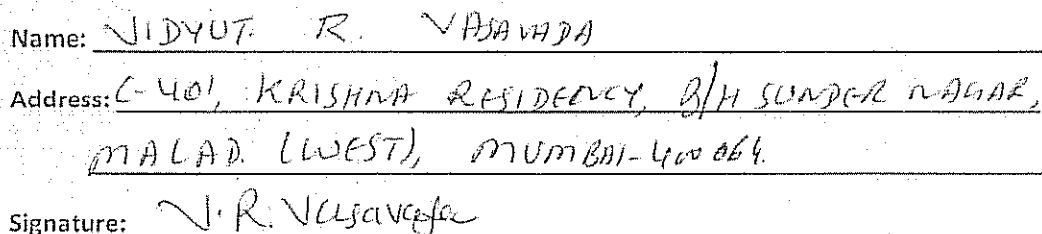 Name: VIDYUT. R. VASAVADA
Address: C-401, KRISHNA RESIDENCY, B/H SUNDER NAGAR,
MALAD. (WEST), MUMBAI-400064.
Signature: V.R. Vasavada